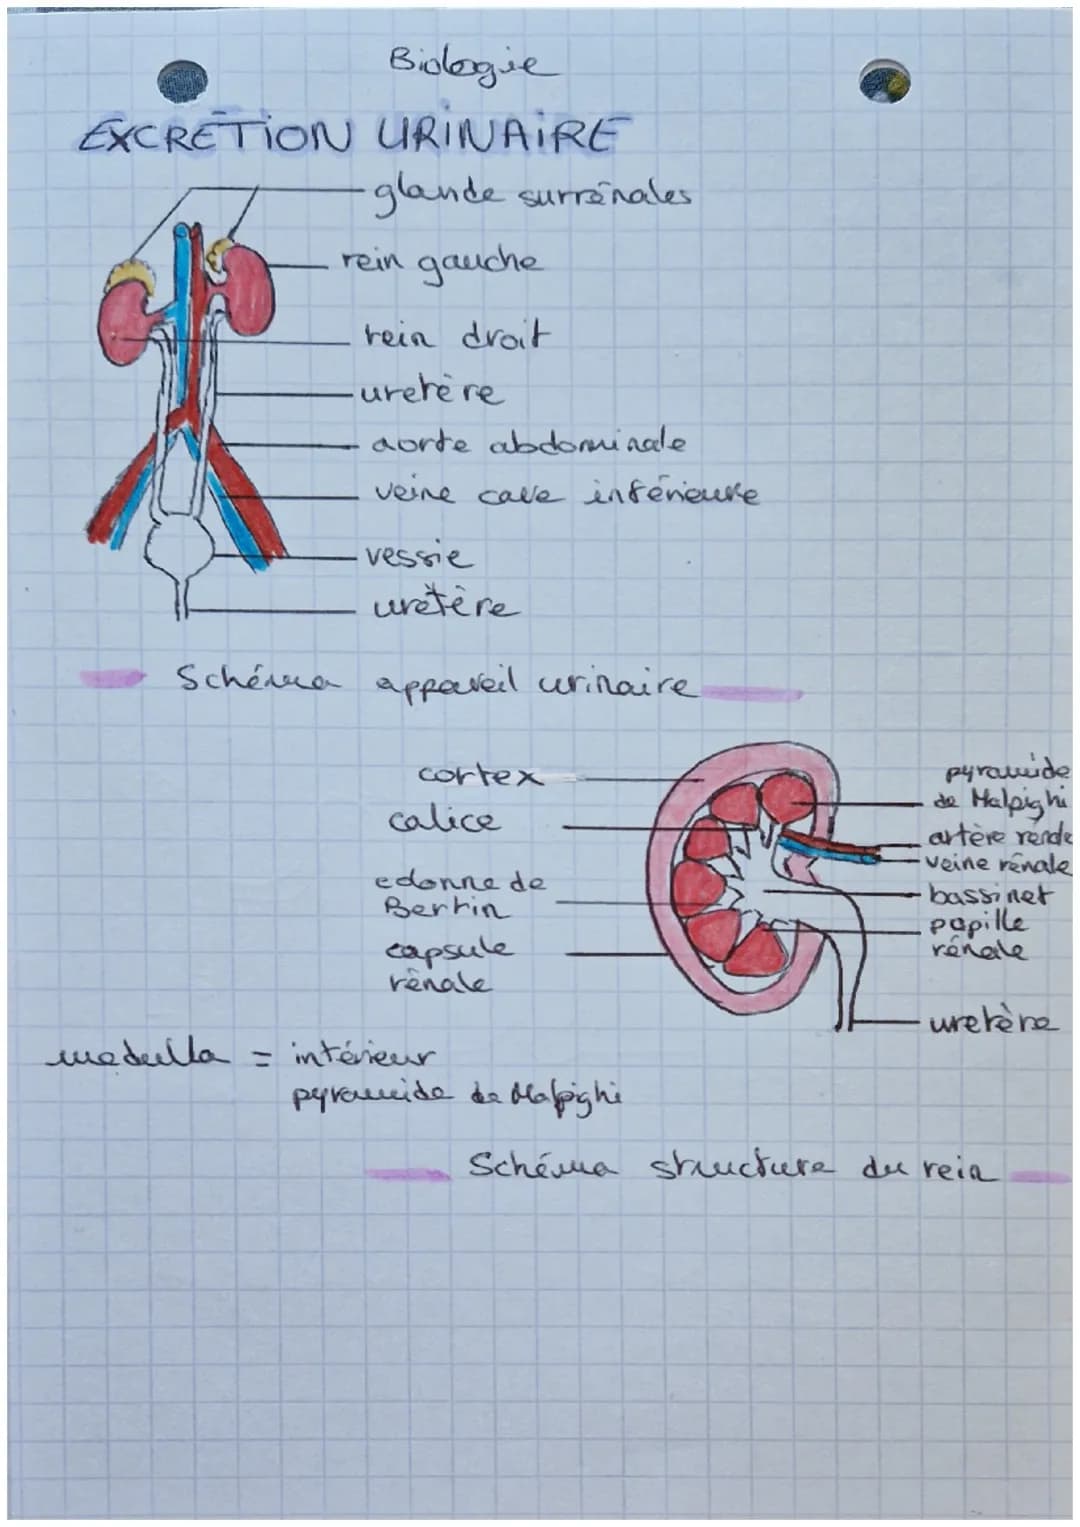 Biologie
EXCRETION URINAIRE
glande surrénales
rein gauche
rein droit
uretère
aorte abdominale
veine cave inférieure
vessie
uretère
Schéma appareil urinaire
cortex
calice
colonne de
Bertin
capsule
rénale
pyramide
de Malpighi
artère rénale
veine rénale
bassinet
papille
rénale
uretère
medulla = intérieur
pyramide de Malpighi
Schéma structure du rein